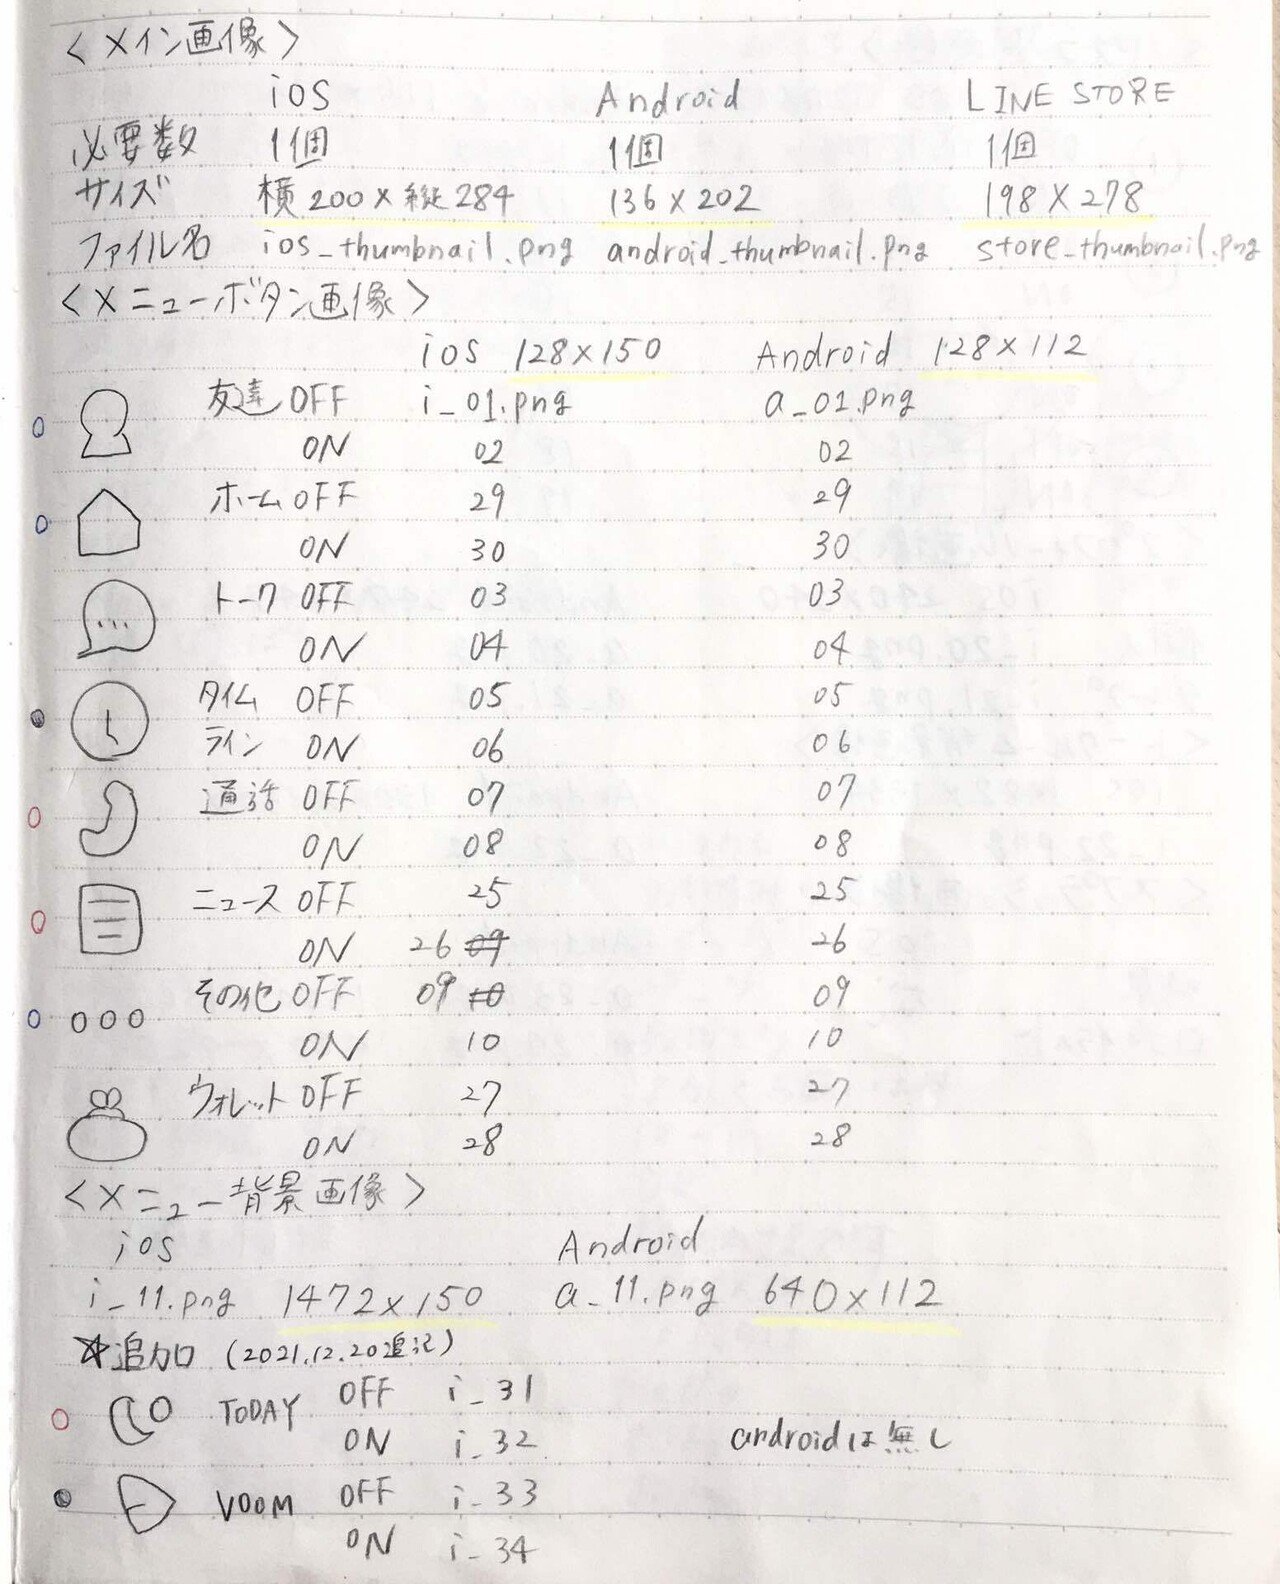 ＜メイン画像＞
iOS Android LINE STORE
必要数 1個 1個 1個
サイズ 横200×縦284 136×202 198×278
ファイル名 ios_thumbnail.png android_thumbnail.png store_thumbnail.png
＜メニューボタン画像＞
iOS 128×150 Android 128×112
友達 OFF i_01.png a_01.png
ON 02 02
ホーム OFF 29 29
ON 30 30
トーク OFF 03 03
ON 04 04
タイム OFF 05 05
ライン ON 06 06
通話 OFF 07 07
ON 08 08
ニュース OFF 25 25
ON 26 09 26
その他 OFF 09 10 09
ON 10 10
ウォレット OFF 27 27
ON 28 28
＜メニュー背景画像＞
iOS Android
i_11.png 1472×150 a_11.png 640×112
☆追加 (2021.12.20追記)
TODAY OFF i_31
ON i_32 androidは無し
VOOM OFF i_33
ON i_34